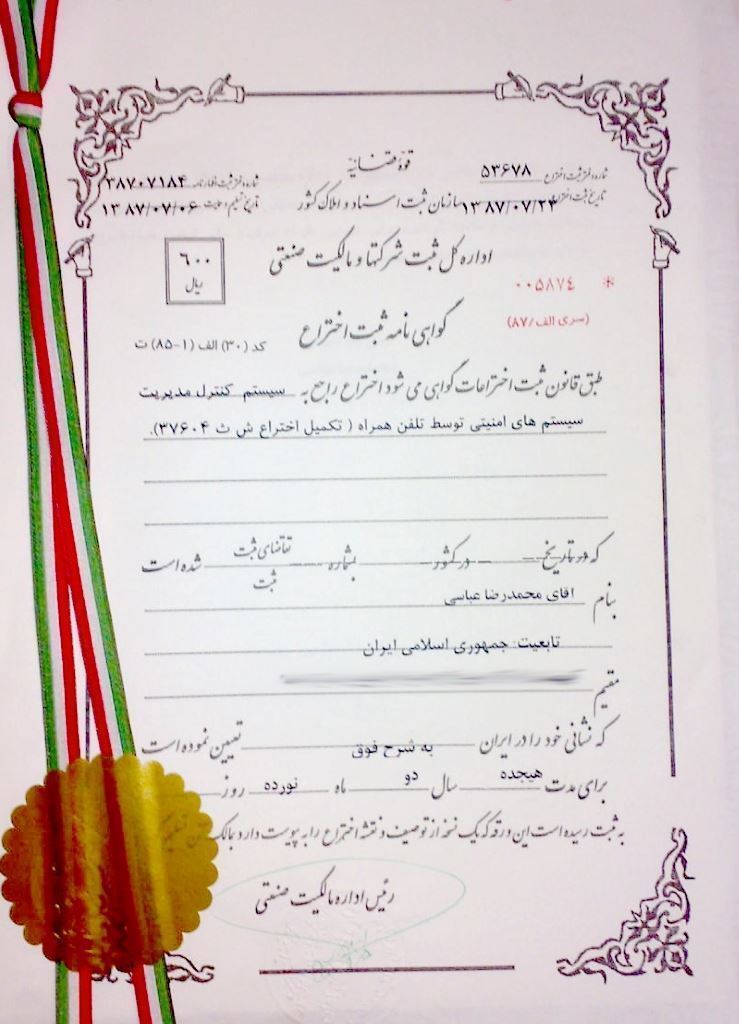 قوهٔ قضائیه
شماره دفتر ثبت اختراع ۵۳۶۷۸
شماره دفتر ثبت اظهارنامه ۳۸۷۰۷۱۸۴
سازمان ثبت اسناد و املاک کشور
تاریخ ثبت اختراع ۱۳۸۷/۰۷/۲۴
تاریخ تسلیم ۱۳۸۷/۰۷/۰۶
اداره کل ثبت شرکتها و مالکیت صنعتی
۶۰۰
ریال
* ۰۰۵۸۷۴
(سری الف/۸۷)
گواهی نامه ثبت اختراع
کد (۳۰) الف (۱-۸۵) ت
طبق قانون ثبت اختراعات گواهی می شود اختراع راجع به سیستم کنترل مدیریت
سیستم های امنیتی توسط تلفن همراه ( تکمیل اختراع ش ث ۳۷۶۰۴).
که در تاریخ در کشور بشماره تقاضای ثبت شده است
ثبت
بنام اقای محمدرضا عباسی
تابعیت: جمهوری اسلامی ایران
مقیم
که نشانی خود را در ایران به شرح فوق تعیین نموده است
برای مدت هیجده سال دو ماه نورده روز
به ثبت رسیده است این ورقه که یک نسخه از توصیف و نقشه اختراع را به پیوست دارد بمالک
رئیس اداره مالکیت صنعتی